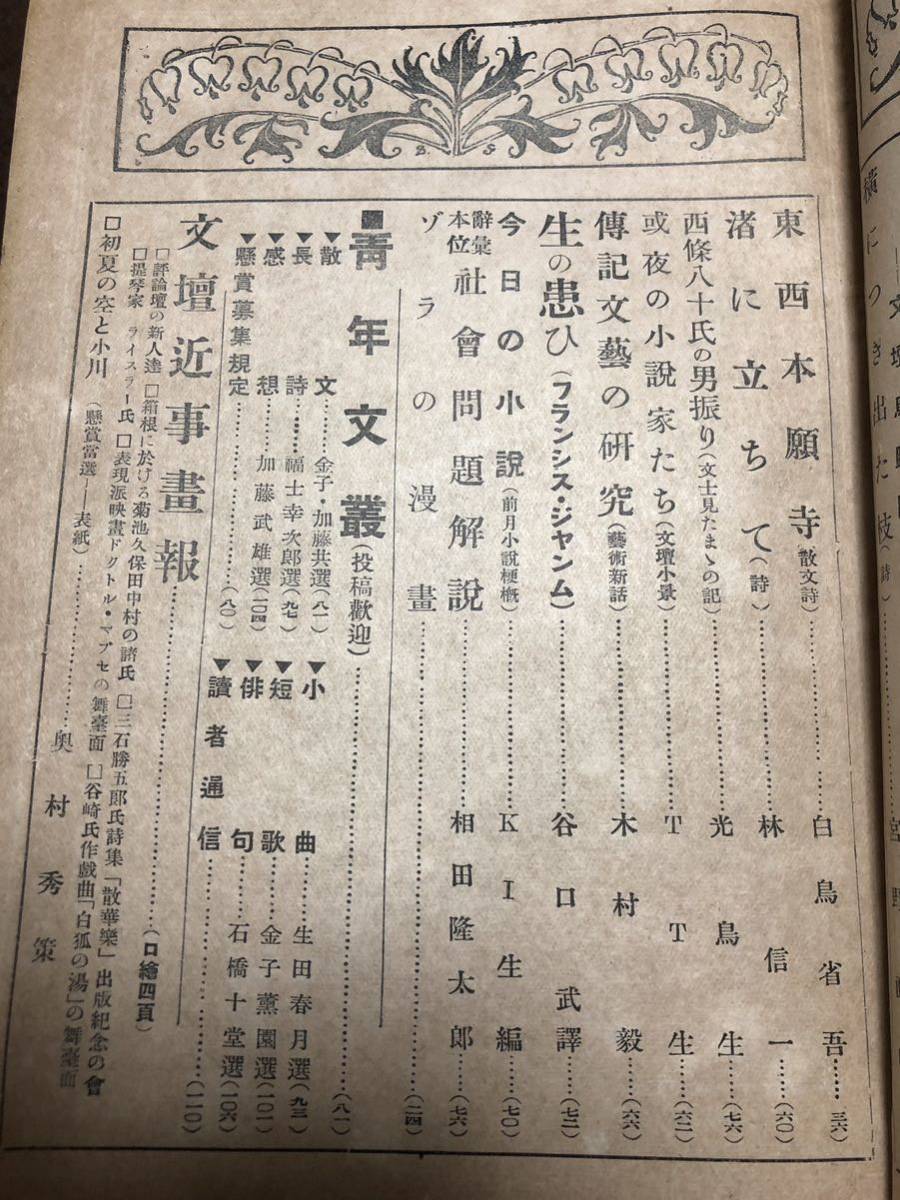 東西本願寺(散文詩)……白鳥省吾……三六
渚に立ちて(詩)……林信一……(六〇)
西條八十氏の男振り(文士見たまゝの記)……光鳥生……(七六)
或夜の小說家たち(文壇小景)……TT生……(六二)
傳記文藝の硏究(藝術新話)……木村毅……(六六)
生の患ひ(フランシス・ジャンム)……谷口武譯……(七二)
今日の小說(前月小說梗槪)……KI生編……(七〇)
辭彙本位 社會問題解說……相田隆太郎……(七六)
ゾラの漫畫……(二四)
靑年文叢(投稿歡迎)……(八一)
▼散文……金子・加藤共選(八一)
▼小曲……生田春月選(九三)
▼長詩……福士幸次郎選(九七)
▼短歌……金子薰園選(一〇一)
▼感想……加藤武雄選(一〇四)
▼俳句……石橋十堂選(一〇六)
▼懸賞募集規定……(八〇)
▼讀者通信……(一一〇)
文壇近事畫報……(口繪四頁)
□評論壇の新人達 □箱根に於ける菊池久保田中村の諸氏 □三石勝五郎氏詩集「散華樂」出版紀念の會
□提琴家 ライスラー氏 □表現派映畫ドクトル・マブセの舞臺面 □谷崎氏作戲曲「白狐の湯」の舞臺面
□初夏の空と小川(懸賞當選——表紙)……奧村秀策
横につき出た枝(詩)